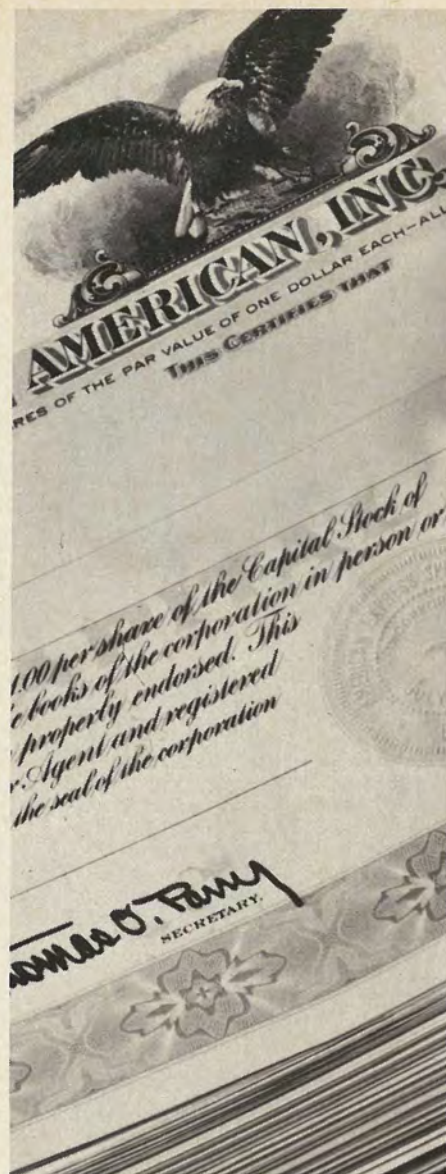 AMERICAN, INC.
RES OF THE PAR VALUE OF ONE DOLLAR EACH—ALL
THIS CERTIFIES THAT
1.00 per share of the Capital Stock of
e books of the corporation in person or
properly endorsed. This
r Agent and registered
the seal of the corporation
omas O. Parry
SECRETARY.